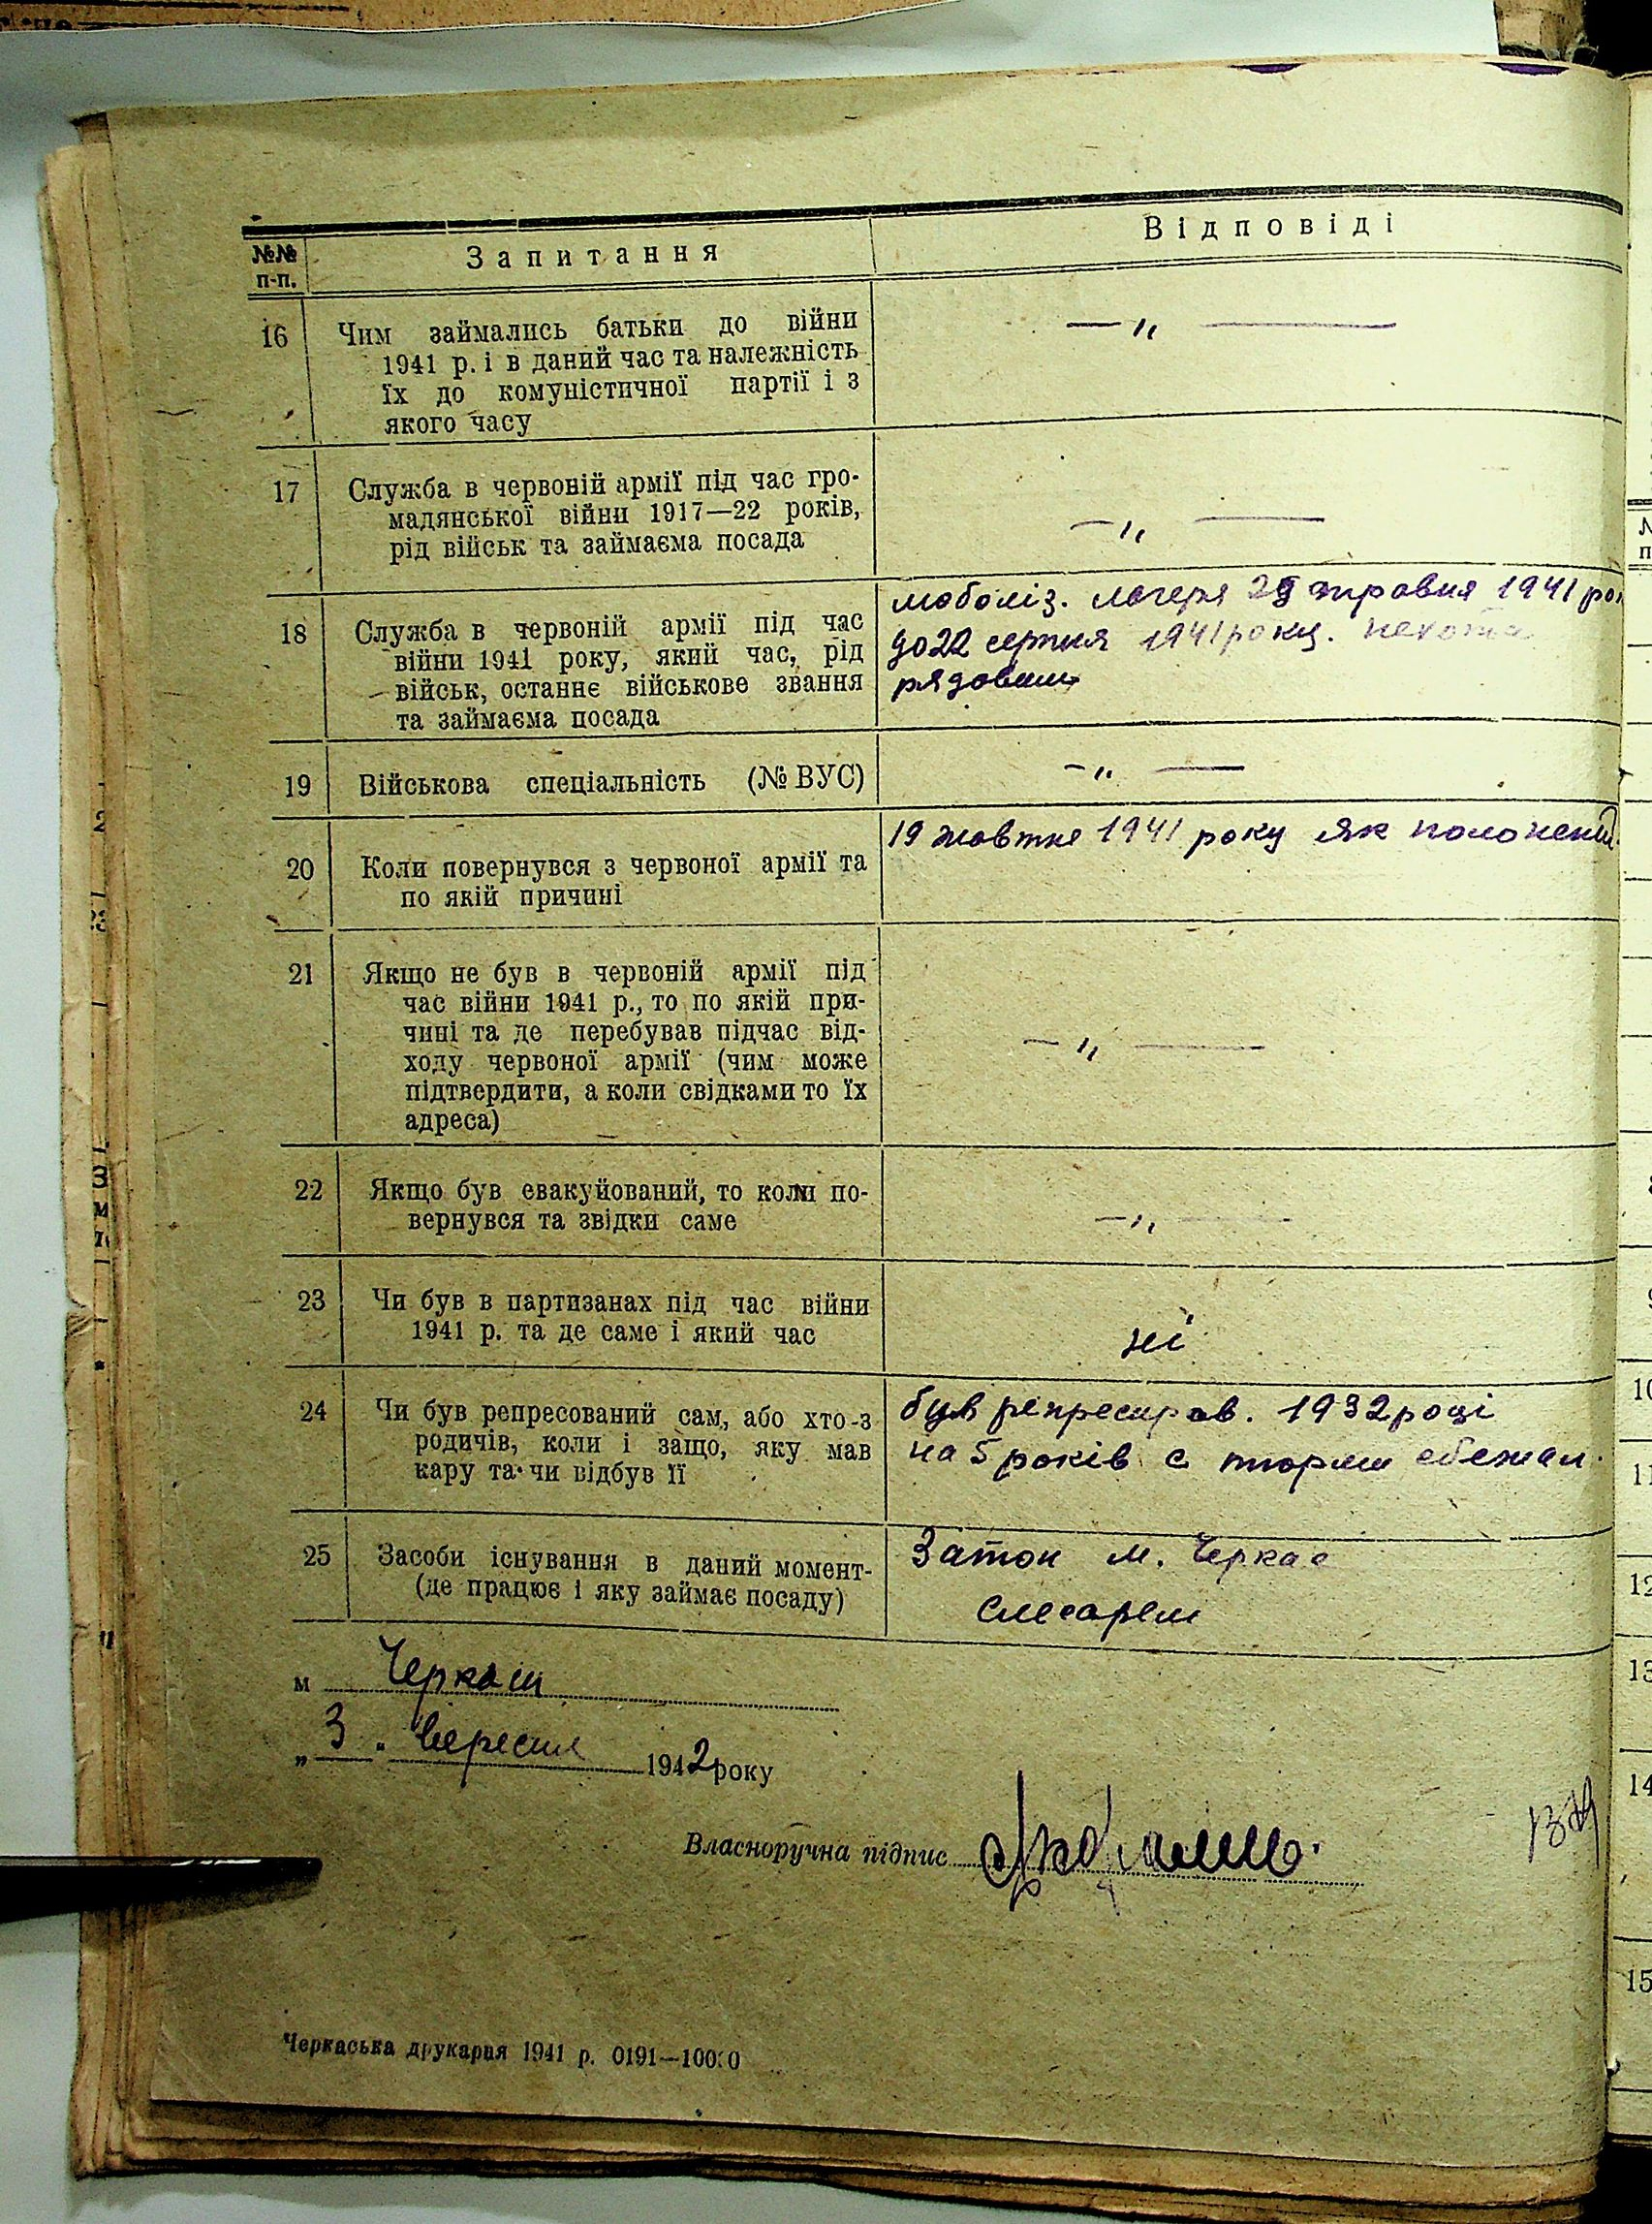 №№ п-п.
Запитання
Відповіді
16
Чим займались батьки до війни
1941 р. і в даний час та належність
їх до комуністичної партії і з
якого часу
— „ —
17
Служба в червоній армії під час гро-
мадянської війни 1917—22 років,
рід військ та займаєма посада
— „ —
18
Служба в червоній армії під час
війни 1941 року, який час, рід
військ, останнє військове звання
та займаєма посада
моболіз. лагеря 29 травня 1941 рок
до 22 серпня 1941 року. пехота
рядовим
19
Військова спеціальність (№ ВУС)
— „ —
20
Коли повернувся з червоної армії та
по якій причині
19 жовтня 1941 року як полонений
21
Якщо не був в червоній армії під
час війни 1941 р., то по якій при-
чині та де перебував підчас від-
ходу червоної армії (чим може
підтвердити, а коли свідками то їх
адреса)
— „ —
22
Якщо був евакуйований, то коли по-
вернувся та звідки саме
— „ —
23
Чи був в партизанах під час війни
1941 р. та де саме і який час
ні
24
Чи був репресований сам, або хто-з
родичів, коли і защо, яку мав
кару та чи відбув її
був репресиров. 1932 році
на 5 років с тюрми сбежал.
25
Засоби існування в даний момент-
(де працює і яку займає посаду)
Затон м. Черкас
слесарем
м Черкаси
„ 3 " вересня 1942 року
Власноручна підпис
Черкаська друкарня 1941 р. 0191—10000